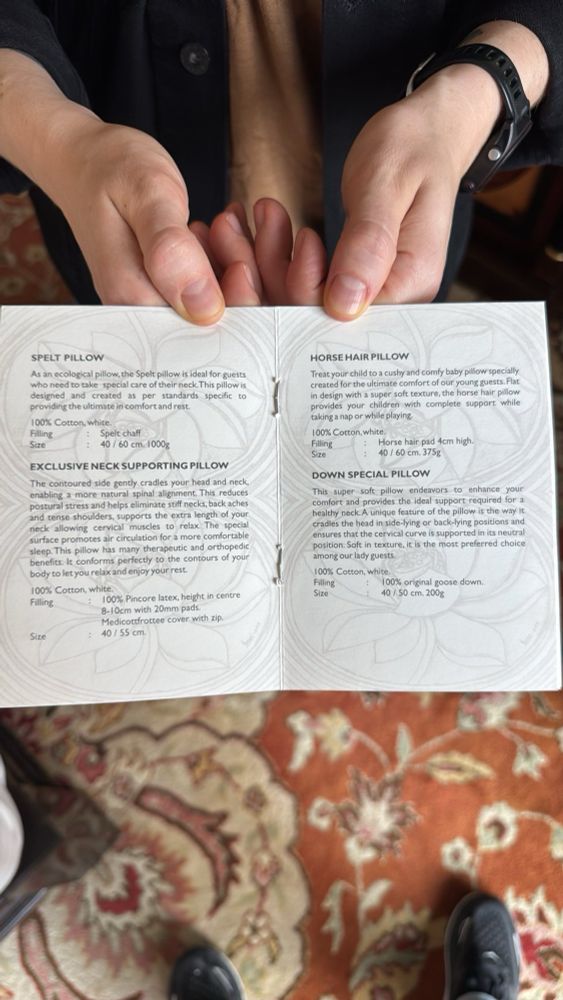 SPELT PILLOW
As an ecological pillow, the Spelt pillow is ideal for guests
who need to take special care of their neck. This pillow is
designed and created as per standards specific to
providing the ultimate in comfort and rest.
100% Cotton, white.
Filling : Spelt chaff
Size : 40 / 60 cm. 1000g
EXCLUSIVE NECK SUPPORTING PILLOW
The contoured side gently cradles your head and neck,
enabling a more natural spinal alignment. This reduces
postural stress and helps eliminate stiff necks, back aches
and tense shoulders, supports the extra length of your
neck allowing cervical muscles to relax. The special
surface promotes air circulation for a more comfortable
sleep. This pillow has many therapeutic and orthopedic
benefits. It conforms perfectly to the contours of your
body to let you relax and enjoy your rest.
100% Cotton, white.
Filling : 100% Pincore latex, height in centre
8-10cm with 20mm pads.
Medicottfrottee cover with zip.
Size : 40 / 55 cm.
HORSE HAIR PILLOW
Treat your child to a cushy and comfy baby pillow specially
created for the ultimate comfort of our young guests. Flat
in design with a super soft texture, the horse hair pillow
provides your children with complete support while
taking a nap or while playing.
100% Cotton, white.
Filling : Horse hair pad 4cm high.
Size : 40 / 60 cm. 375g
DOWN SPECIAL PILLOW
This super soft pillow endeavors to enhance your
comfort and provides the ideal support required for a
healthy neck. A unique feature of the pillow is the way it
cradles the head in side-lying or back-lying positions and
ensures that the cervical curve is supported in its neutral
position. Soft in texture, it is the most preferred choice
among our lady guests.
100% Cotton, white.
Filling : 100% original goose down.
Size : 40 / 50 cm. 200g